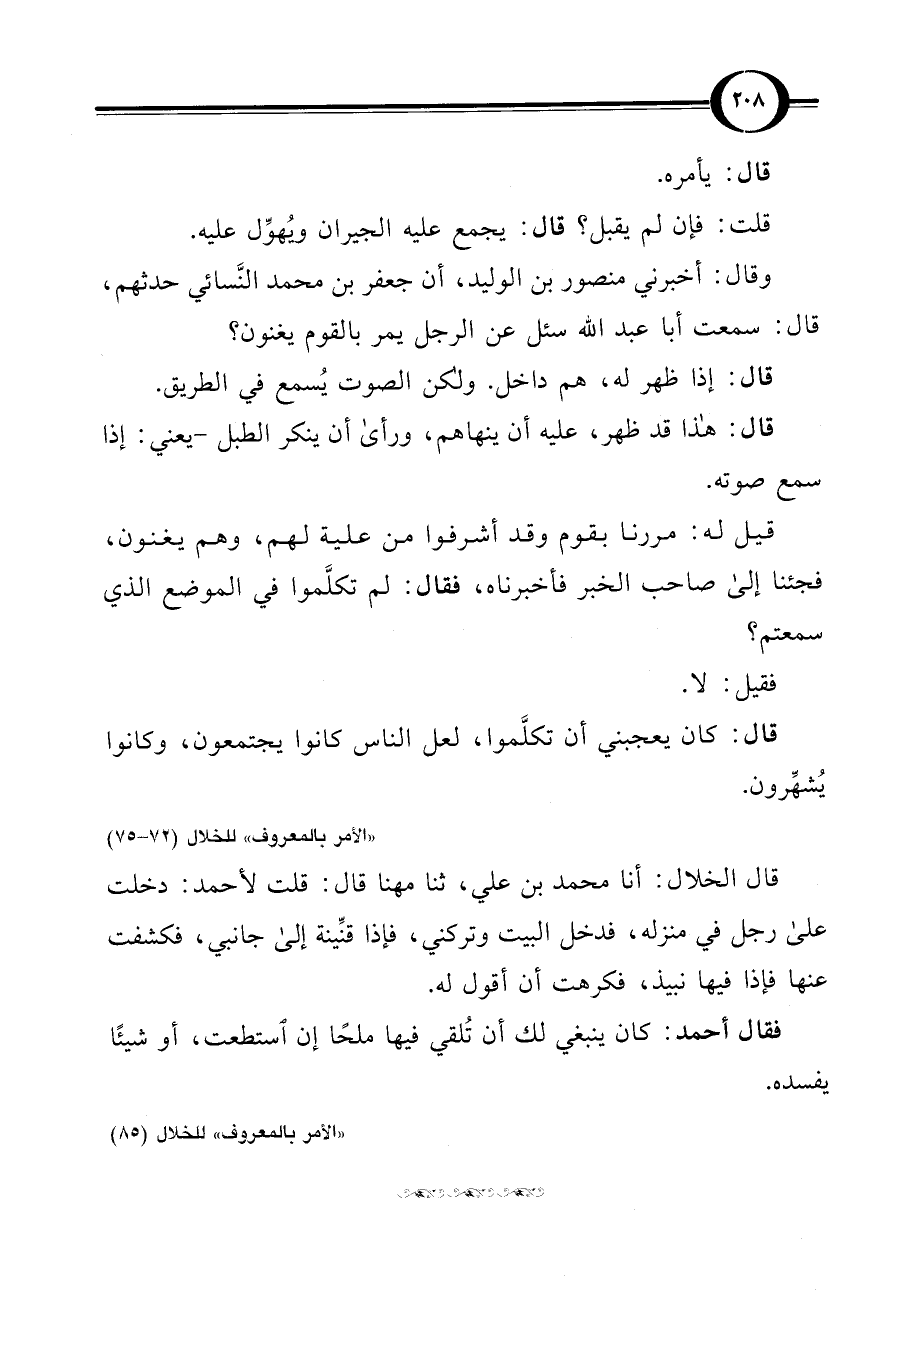 ٢٠٨
قال: يأمره.
قلت: فإن لم يقبل؟ قال: يجمع عليه الجيران ويُهوِّل عليه.
وقال: أخبرني منصور بن الوليد، أن جعفر بن محمد النَّسائي حدثهم،
قال: سمعت أبا عبد الله سئل عن الرجل يمر بالقوم يغنون؟
قال: إذا ظهر له، هم داخل. ولكن الصوت يُسمع في الطريق.
قال: هٰذا قد ظهر، عليه أن ينهاهم، ورأىٰ أن ينكر الطبل -يعني: إذا
سمع صوته.
قيل له: مررنا بقوم وقد أشرفوا من علية لهم، وهم يغنون،
فجئنا إلىٰ صاحب الخبر فأخبرناه، فقال: لم تكلَّموا في الموضع الذي
سمعتم؟
فقيل: لا.
قال: كان يعجبني أن تكلَّموا، لعل الناس كانوا يجتمعون، وكانوا
يُشهِّرون.
«الأمر بالمعروف» للخلال (٧٢-٧٥)
قال الخلال: أنا محمد بن علي، ثنا مهنا قال: قلت لأحمد: دخلت
علىٰ رجل في منزله، فدخل البيت وتركني، فإذا قنِّينة إلىٰ جانبي، فكشفت
عنها فإذا فيها نبيذ، فكرهت أن أقول له.
فقال أحمد: كان ينبغي لك أن تُلقي فيها ملحًا إن ٱستطعت، أو شيئًا
يفسده.
«الأمر بالمعروف» للخلال (٨٥)